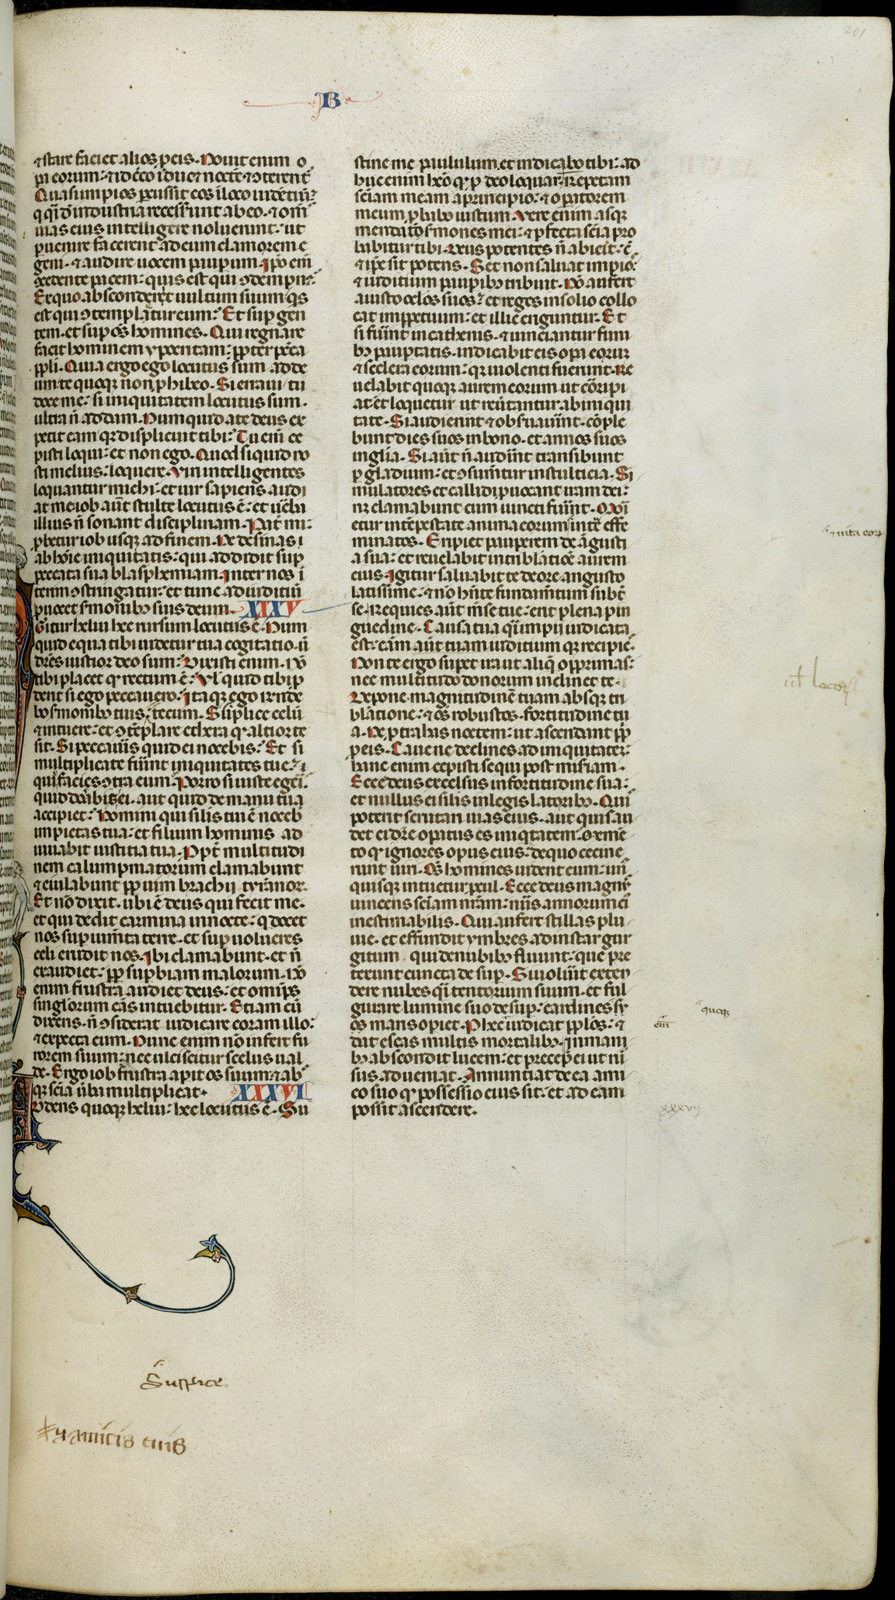 201
B
⁊ stare faciet alios ꝓ eis. Nouit enim o
pa eorum: ⁊ idc̄co iducet noctē ⁊ ɔterent᷑
Quasi impios ꝑcussit eos ī loco uidētiū:
q̄ q̄i d̄ industria recesserunt ab eo. ⁊ om̄s
uias eius intelligere noluerunt. ut
ꝑuenire facerent ad eum clamorem e
geni. ⁊ audire uocem paupum. Ip̄o em̄
ɔcedente pacem: quis est qui ɔdempn&?
Ex quo absconderit uultum suum q̄s
est qui ɔtempletur eum? Et sup gen
tem. et sup om̄s homines. Qui regnare
facit hominem ypocritam: ꝓpter pecc̄a
ppl̄i. Quia ergo ego locutus sum ad de
um: te quoqꝫ nō ꝓhibeo. Si erraui tu
doce me: si iniquitatem locutus sum.
ultra n̄ addam. Num quid a te deus ex
petit eam qꝛ displicuit tibi? Tu em̄ ce
pisti loqui: et non ego. Quod si quid no
sti melius: loquere. Viri intelligentes
loquantur michi: et uir sapiens audi
at me. iob aut̄ stulte locutus ē: et uerba
illius n̄ sonant disciplinam. Pat̄ mi:
ꝓbetur iob usqꝫ ad finem. Ne desinas
ab hoīe iniquitatis: qui addidit sup
peccata sua blasphemiam. Inter nos ī
terim ɔstringatur: et tunc ad iudiciū
ꝓuocet sermonibꝫ suis deum. XXXV
Igitur heliu hec rursum locutus ē. Num
quid equa tibi uidetur tua cogitatio. ut
diceres iustior deo sum? Dixisti enim. Nō
tibi placet qd̄ rectum ē. Vl̓ quid tibi ꝓ
derit si ego peccauero? Itaqꝫ ego rn̄de
bo sermonibꝫ tuis: ⁊ amicis tuis tecum. Suspice celū
⁊ intuere: et ɔtēplare ethera qd̄ altior te
sit. Si peccaueris quid ei nocebis? Et si
multiplicate fuerint iniquitates tue:
quid facies ɔtra eum? Porro si iuste egeris
quid donabis ei. aut quid de manu tua
accipiet? Homini qui similis tui ē nocebit
impietas tua: et filium hominis ad
iuuabit iustitia tua. Ppt̄ multitudi
nem calumpniatorum clamabunt
⁊ eiulabunt ꝓpter uim brachii tyrānoꝝ.
Et nō dixit. ubi ē deus qui fecit me.
et qui dedit carmina in nocte: q̄ docet
nos sup iumenta terre. et sup uolucres
celi erudit nos. Ibi clamabunt. et n̄
exaudiet: ꝓp supbiam malorum. Nō
enim frustra audiet deus: et omnipōs
singlorum cās intuebitur. Etiam cū
dixeris. n̄ ɔsiderat iudicare coram illo:
⁊ expecta eum. Nunc enim nō infert fu
rorem suum: nec ulciscitur scelus ual
de. Ergo iob frustra apit os suum: ⁊ ab
qꝫ scīa uerba multiplicat. XXXVI
Addens quoqꝫ heliu: hec locutus ē. Su
stine me paululum. et indicabo tibi: ad
huc enim habeo qd̄ ꝓ deo loquar. Repetam
scīam meam a principio: ⁊ opatorem
meum ꝓbabo iustum. Vere enim absqꝫ
mendacio sermones mei: ⁊ ꝑfecta scīa ꝓ
babitur tibi. Deus potentes n̄ abicit: cū
⁊ ip̄e sit potens. Set non saluat impios:
⁊ iudicium paupibꝫ tribuit. Nō aufert
a iusto oclos suos: et reges in solio collo
cat imppetuum: et illic eriguntur. Et
si fuerint in cathenis. ⁊ uinciantur funi
bꝫ paupertatis. indicabit eis opa eorum
⁊ scelera eorum: qꝛ uiolenti fuerunt. Re
uelabit quoqꝫ aurem eorum ut corripi
at: et loquetur ut reūtantur ab iniqui
tate. Si audierint ⁊ obseruauerint. cōple
bunt dies suos in bono. et annos suos
in gl̄ia. Si aut̄ n̄ audierint transibunt
ꝑ gladium: et ɔsumentur in stulticia. Si
mulatores et callidi ꝓuocant iram dei:
nec clamabunt cum iuncti fuerint. Mori
etur in tempestate anima eorum: inter effe
minatos. Eripiet pauperem de angusti
a sua: et reuelabit in tribulatione aurem
eius. Igitur saluabit te de ore angusto
latissime: ⁊ nō habente fundamentum subter
se. Requies aut̄ mense tue: erit plena pin
guedine. Causa tua q̄i impii iudicata
est: cām aut̄ tuam iudicium qꝫ recipies.
Non te ergo superet ira ut aliquem opprimas:
nec multitudo donorum inclinet te.
Depone magnitudinē tuam absqꝫ tri
blatione: ⁊ om̄s robustos fortitudine tu
a. Ne ptrahas noctem: ut ascendant ppl̄i
ꝓ eis. Caue ne declines ad iniquitatem:
hanc enim cepisti sequi post miseriam.
Ecce deus excelsus in fortitudine sua:
et nullus ei similis in legislatoribꝫ. Quis
poterit scrutari uias eius. aut quis au
det ei dicere opatus es iniquitatem? Memē
to qd̄ ignores opus eius: de quo cecine
runt uiri. Om̄s homines uident eum: un̄
quisqꝫ intuetur procul. Ecce deus magnus
uincens scīam nr̄am: numerus annorum ei
inestimabilis. Qui aufert stillas plu
uie. et effundit ymbres ad instar gur
gitum. qui de nubibꝫ fluunt: que pre
texunt cuncta desup. Si uoluerit exten
dere nubes q̄i tentorium suum. et ful
gurare lumine suo desup: cardines q̄
os maris opiet. Per hec iudicat ppl̄os: ⁊
dat escas multis mortalibꝫ. In mani
bꝫ abscondit lucem: et precepit ei ut rur
sus adueniat. Annuntiat de ea ami
co suo qd̄ possessio eius sit: et ad eam
possit ascendere.
⁊ uita eoꝝ
quoqꝫ
em̄
xxxvij
Suspice
⁊ amicis tuis